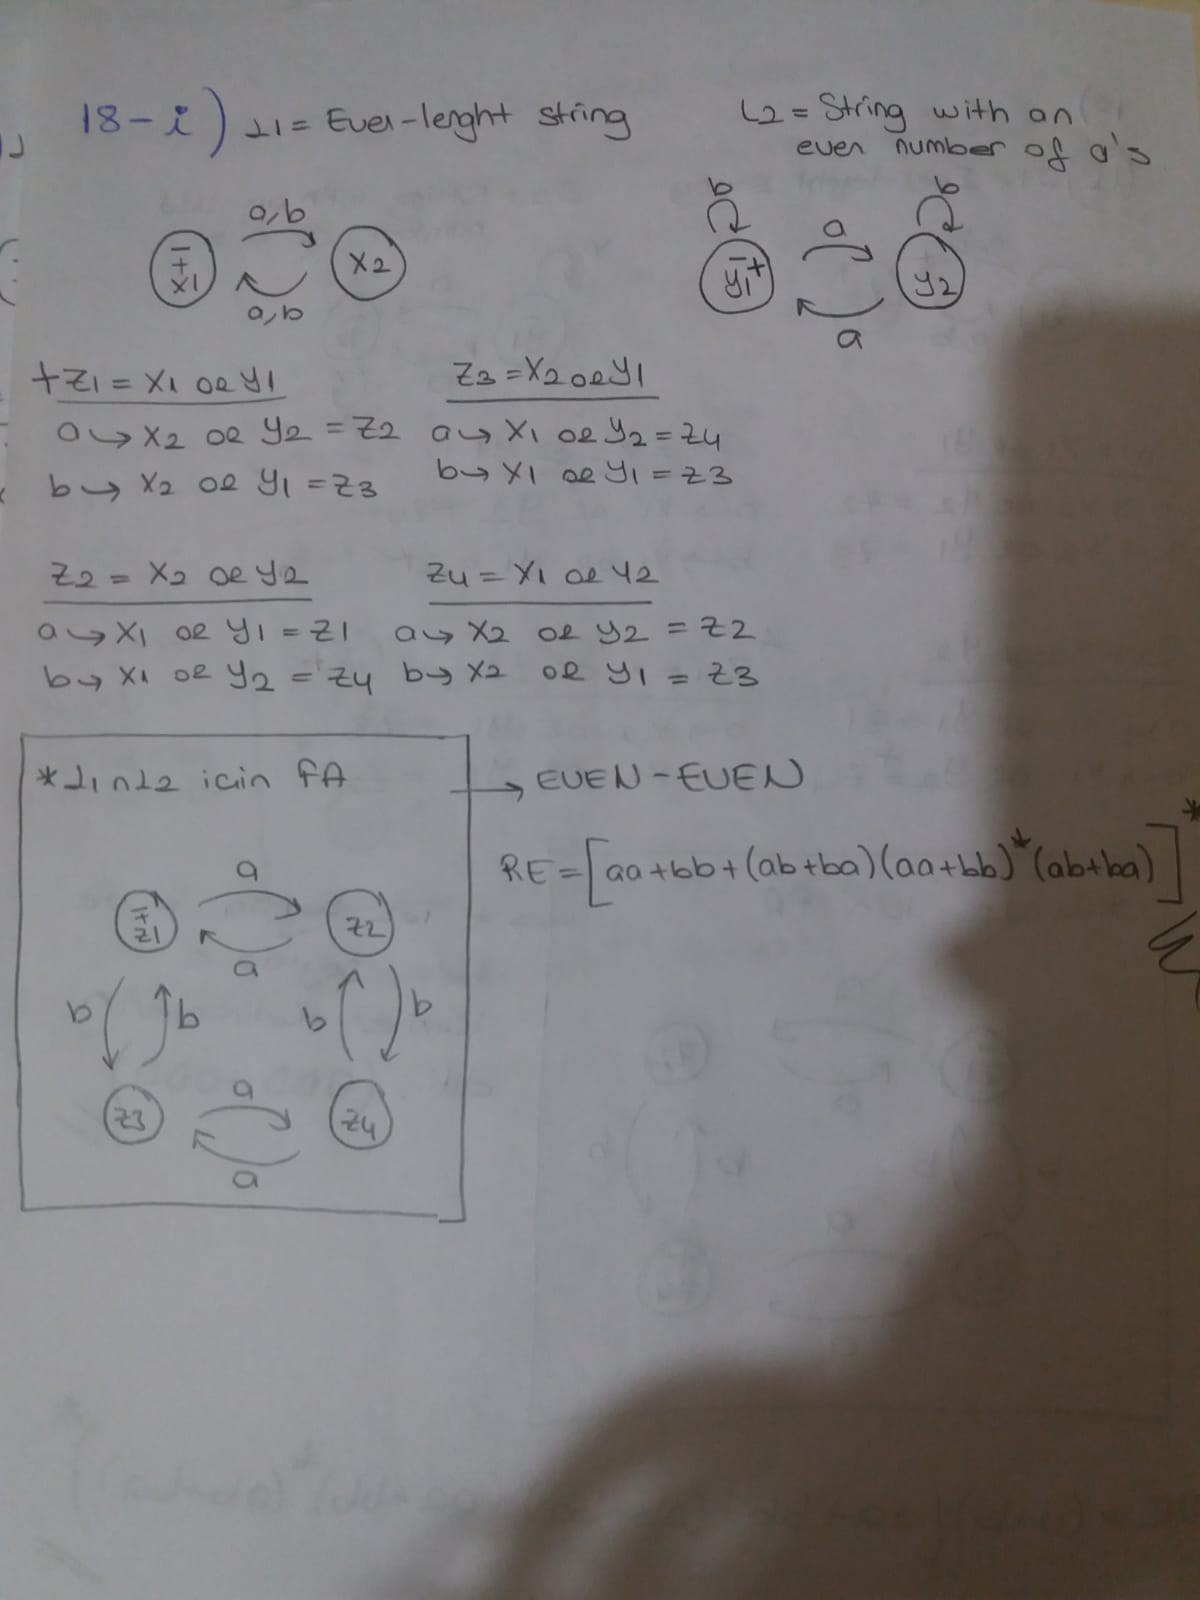 18-i) L1 = Even-lenght string
L2 = String with an
even number of a's
a,b
∓ x1
x2
a,b
b
b
a
y1 ∓
y2
a
+z1 = x1 or y1
a → x2 or y2 = z2
b → x2 or y1 = z3
z3 = x2 or y1
a → x1 or y2 = z4
b → x1 or y1 = z3
z2 = x2 or y2
a → x1 or y1 = z1
b → x1 or y2 = z4
z4 = x1 or y2
a → x2 or y2 = z2
b → x2 or y1 = z3
* L1 ∩ L2 icin FA
→ EVEN-EVEN
RE = [aa+bb+(ab+ba)(aa+bb)*(ab+ba)]*
a
∓ z1
z2
a
b
b
b
b
a
z3
z4
a